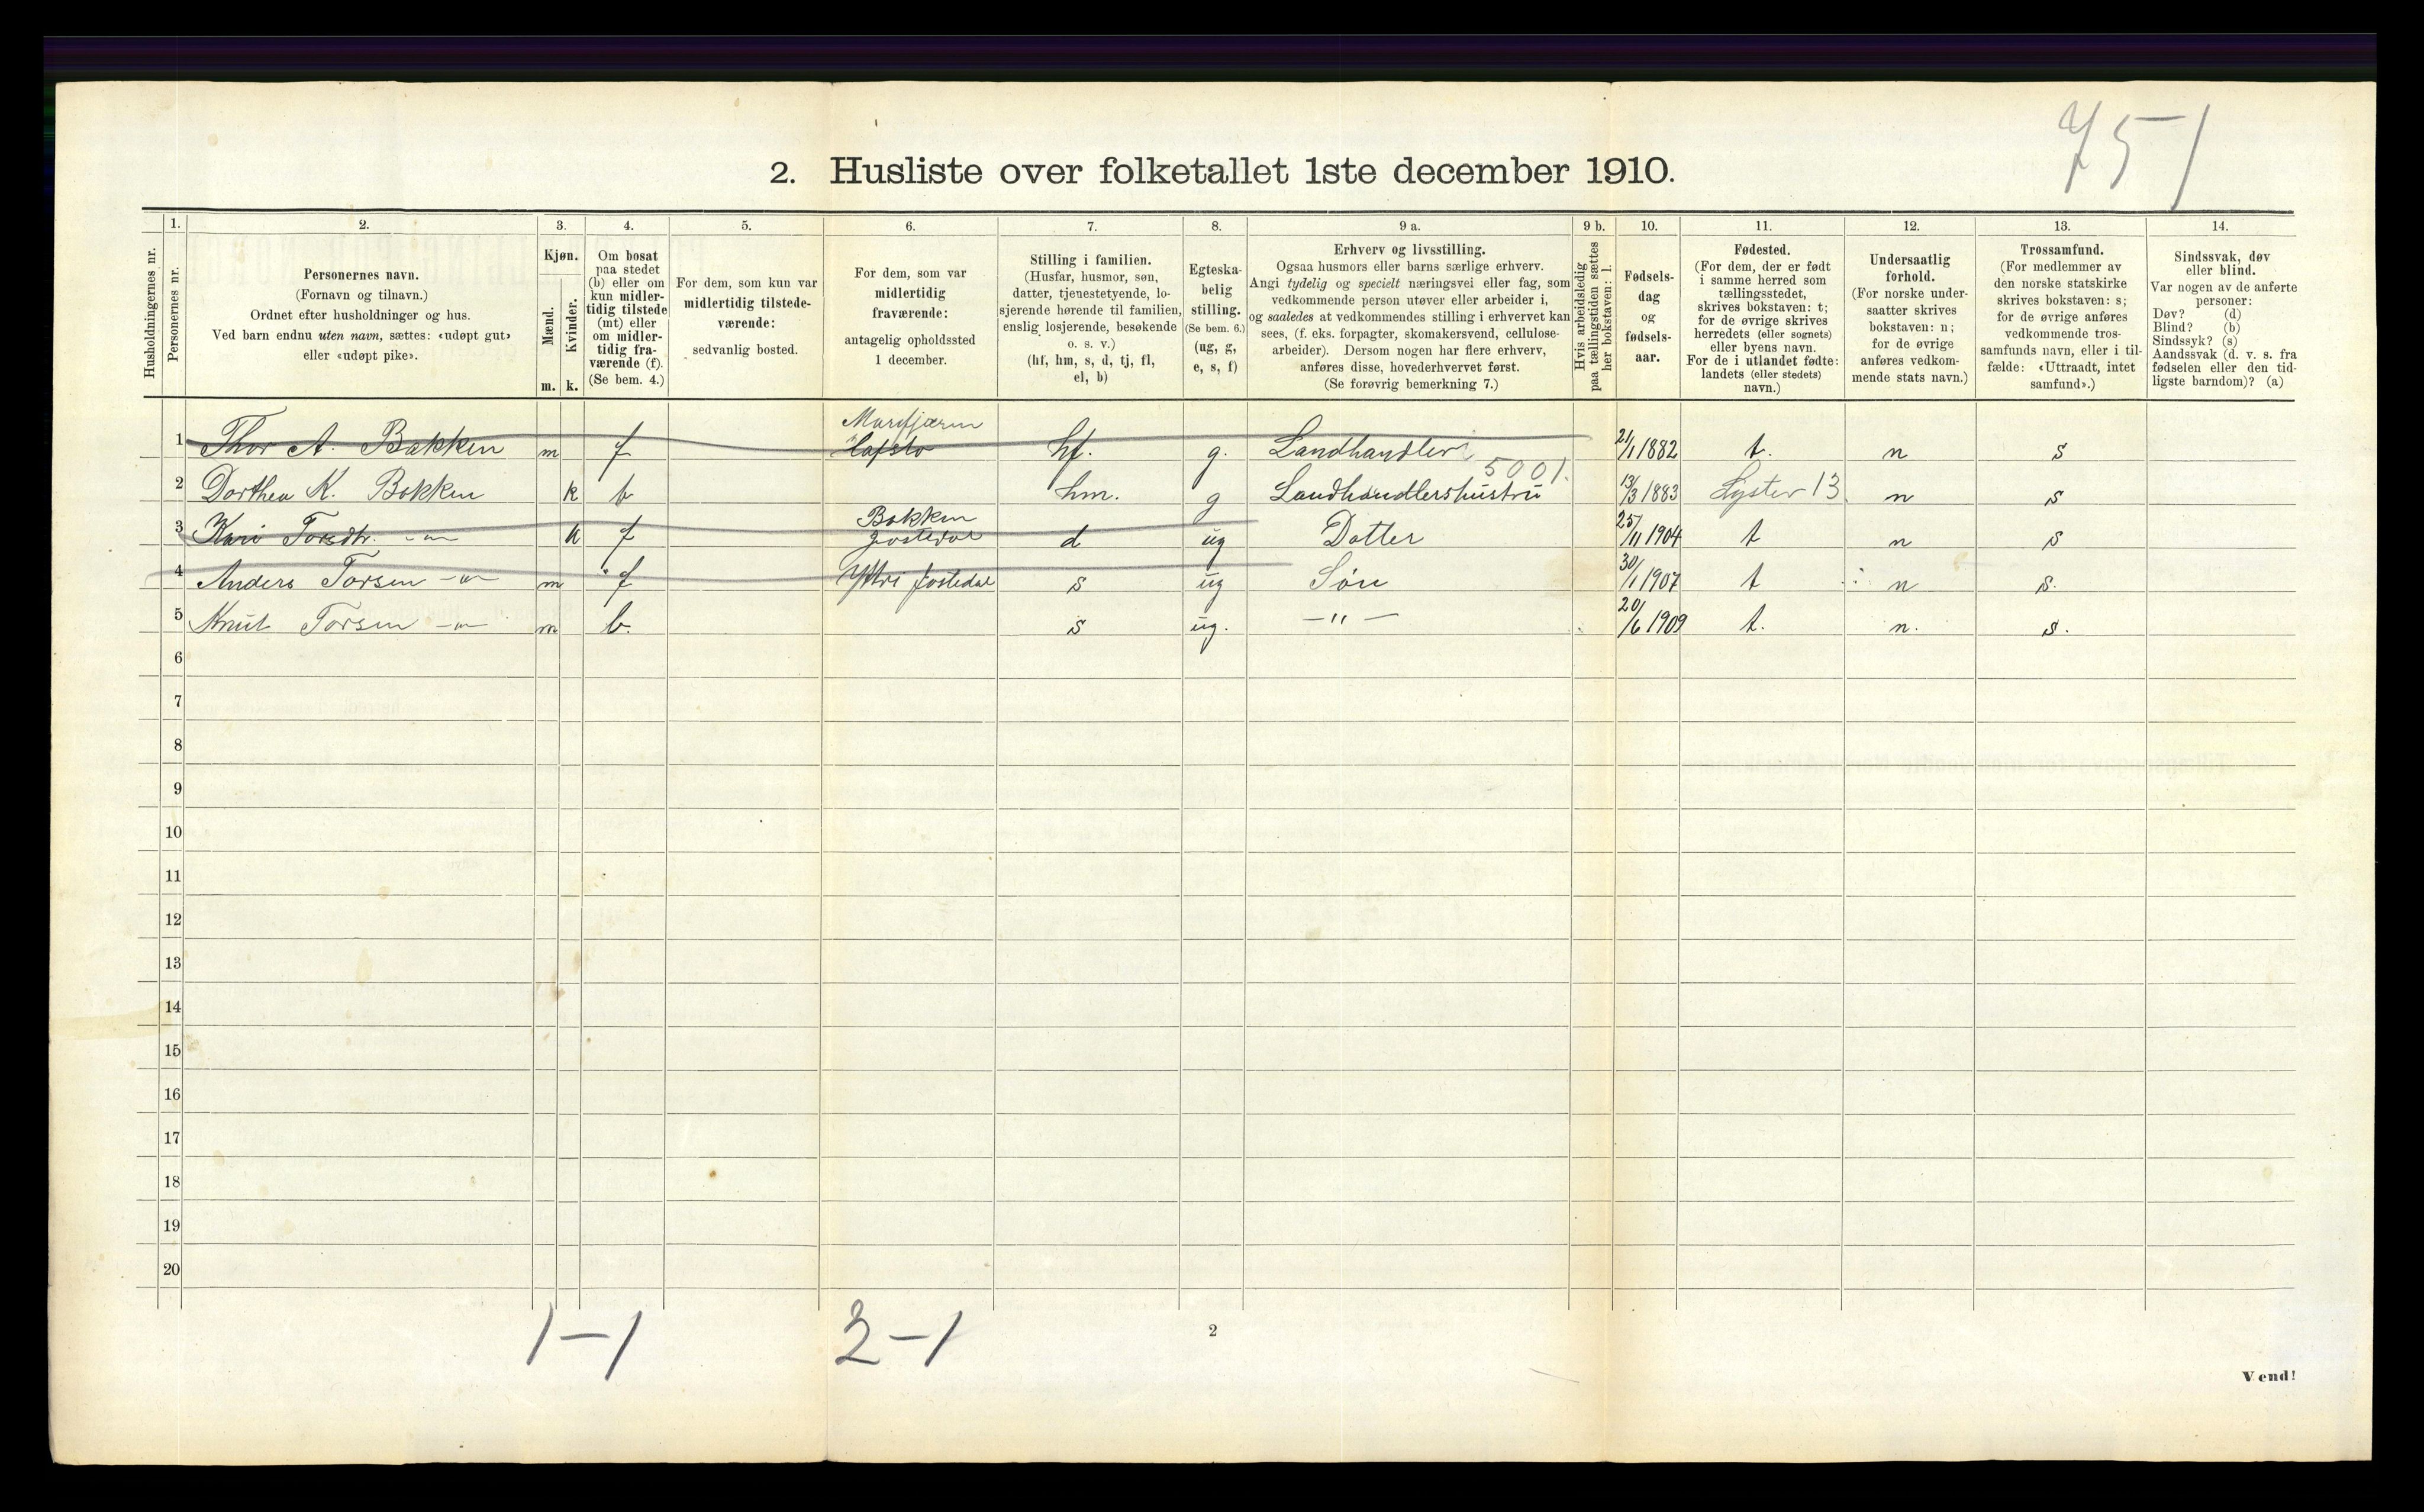 751
2. Husliste over folketallet 1ste december 1910.
1. 2. 3. 4. 5. 6. 7. 8. 9 a. 9 b. 10. 11. 12. 13. 14.
Husholdningernes nr.
Personernes nr.
Personernes navn.
(Fornavn og tilnavn.)
Ordnet efter husholdninger og hus.
Ved barn endnu uten navn, sættes: «udøpt gut»
eller «udøpt pike».
Kjøn.
Mænd.
Kvinder.
m. k.
Om bosat
paa stedet
(b) eller om
kun midler-
tidig tilstede
(mt) eller
om midler-
tidig fra-
værende (f).
(Se bem. 4.)
For dem, som kun var
midlertidig tilstede-
værende:
sedvanlig bosted.
For dem, som var
midlertidig
fraværende:
antagelig opholdssted
1 december.
Stilling i familien.
(Husfar, husmor, søn,
datter, tjenestetyende, lo-
sjerende hørende til familien,
enslig losjerende, besøkende
o. s. v.)
(hf, hm, s, d, tj, fl,
el, b)
Egteska-
belig
stilling.
(Se bem. 6.)
(ug, g,
e, s, f)
Erhverv og livsstilling.
Ogsaa husmors eller barns særlige erhverv.
Angi tydelig og specielt næringsvei eller fag, som
vedkommende person utøver eller arbeider i,
og saaledes at vedkommendes stilling i erhvervet kan
sees, (f. eks. forpagter, skomakersvend, cellulose-
arbeider). Dersom nogen har flere erhverv,
anføres disse, hovederhvervet først.
(Se forøvrig bemerkning 7.)
Hvis arbeidsledig
paa tællingstiden sættes
her bokstaven: l.
Fødsels-
dag
og
fødsels-
aar.
Fødested.
(For dem, der er født
i samme herred som
tællingsstedet,
skrives bokstaven: t;
for de øvrige skrives
herredets (eller sognets)
eller byens navn.
For de i utlandet fødte:
landets (eller stedets)
navn.)
Undersaatlig
forhold.
(For norske under-
saatter skrives
bokstaven: n;
for de øvrige
anføres vedkom-
mende stats navn.)
Trossamfund.
(For medlemmer av
den norske statskirke
skrives bokstaven: s;
for de øvrige anføres
vedkommende tros-
samfunds navn, eller i til-
fælde: «Uttraadt, intet
samfund».)
Sindssvak, døv
eller blind.
Var nogen av de anførte
personer:
Døv? (d)
Blind? (b)
Sindssyk? (s)
Aandssvak (d. v. s. fra
fødselen eller den tid-
ligste barndom)? (a)
Marifjæren
1 Thor A. Bakken m f Hafslo hf. g. Landhandler 21/1 1882 t. n s
5001.
2 Dorthea K. Bakken k b hm. g Landhandlershustru 13/3 1883 Lyster 13 n s
Bakken
3 Kari Torsdtr. -"- k f Jostedal d ug Datter 25/11 1904 t n s
4 Anders Torsen -"- m f Ytri Jostedal s ug Søn 30/1 1907 t n s.
5 Knut Torsen -"- m b. s ug. -"- 20/6 1909 t. n. s.
6
7
8
9
10
11
12
13
14
15
16
17
18
19
20
1-1 2-1
2
Vend!